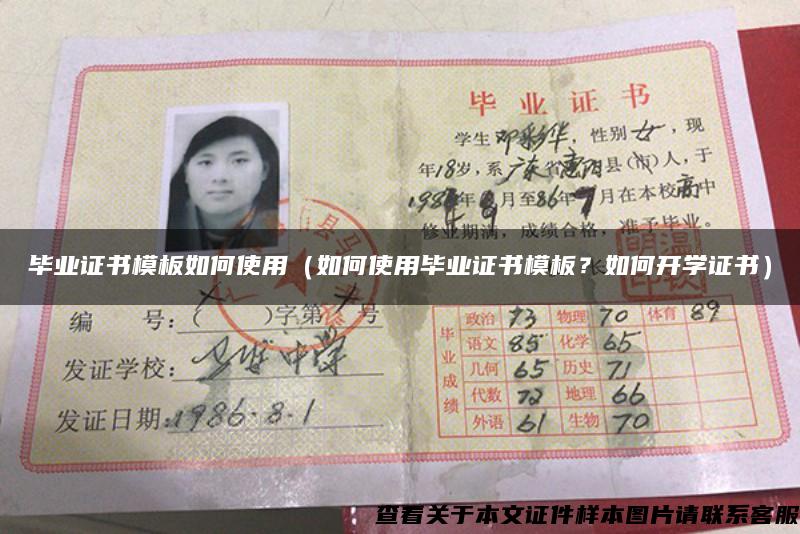 毕业证书
学生邓彩华，性别女，现
年18岁，系广东省惠阳县(市)人，于
月至86年7月在本校高中
修业期满，成绩合格，准予毕业。
毕业证书模板如何使用（如何使用毕业证书模板？如何开学证书）
编 号：( )字第 号
发证学校：中学
发证日期：1986.8.1
毕业成绩
政治 73 物理 70 体育 89
语文 85 化学 65
几何 65 历史 71
代数 72 地理 66
外语 61 生物 70
查看关于本文证件样本图片请联系客服